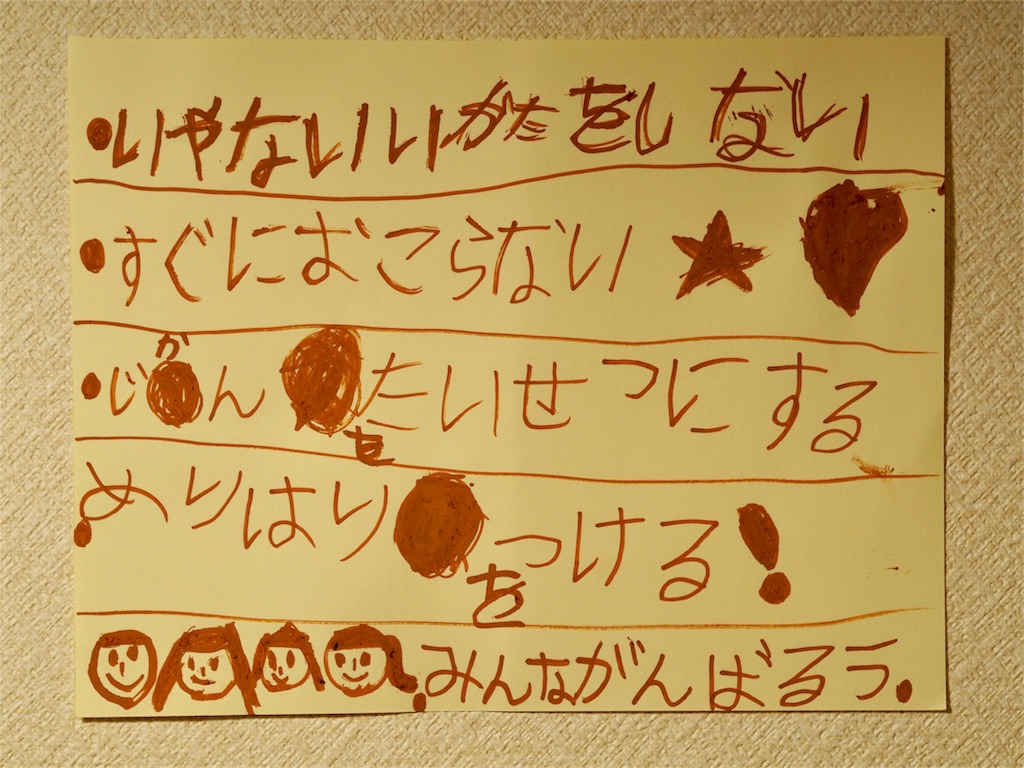 ・いやないいがたをしない
・すぐにおこらない
・じかんをたいせつにする
・めりはりをつける!
・みんながんばるう.